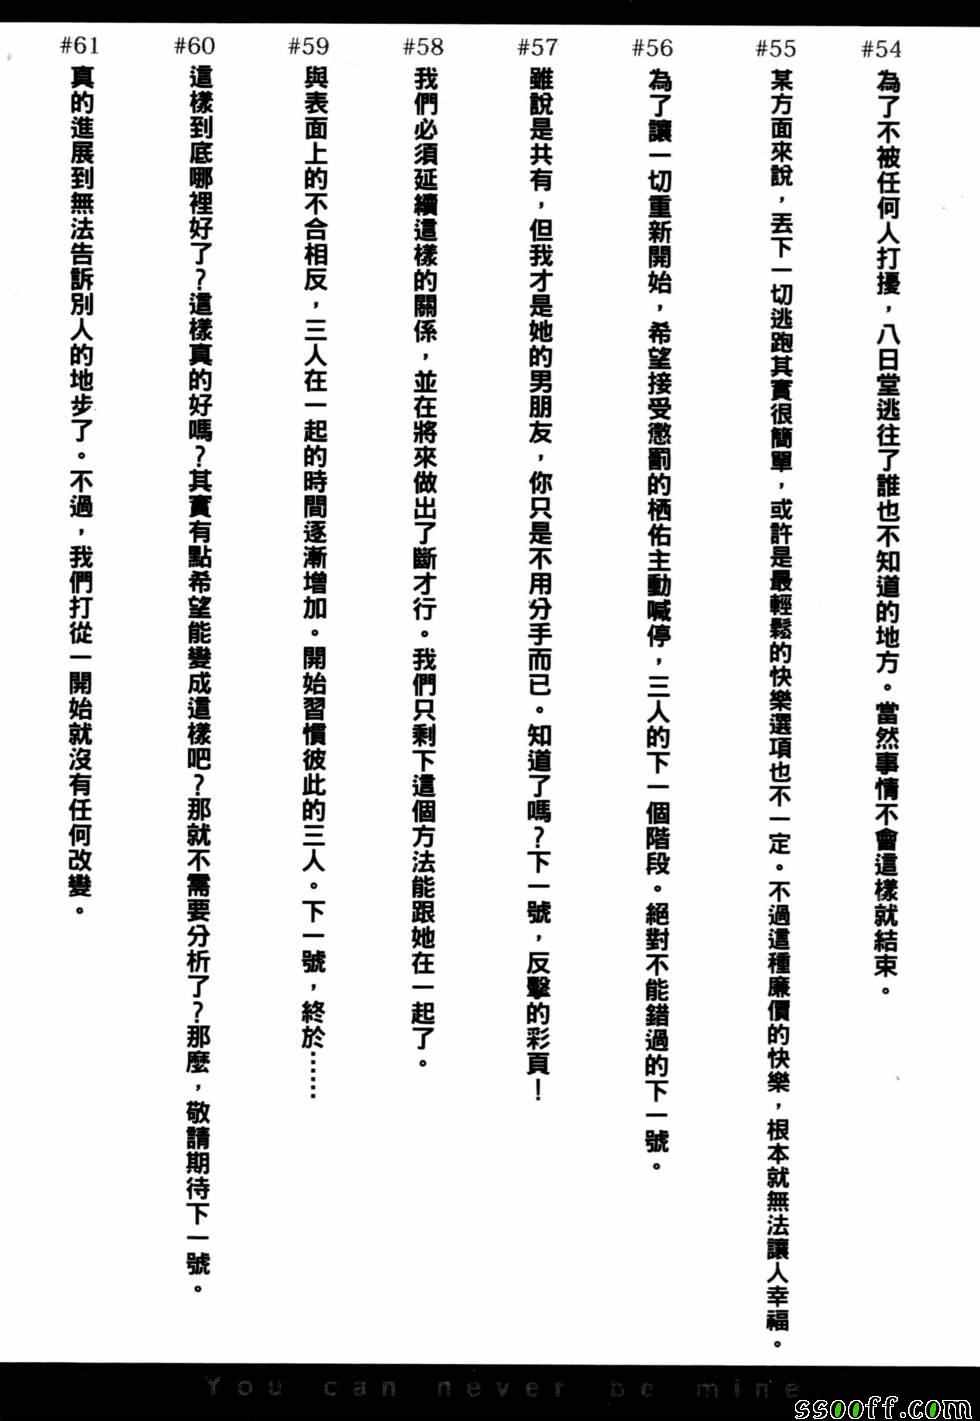 #54
為了不被任何人打擾，八日堂逃往了誰也不知道的地方。當然事情不會這樣就結束。
#55
某方面來說，丟下一切逃跑其實很簡單，或許是最輕鬆的快樂選項也不一定。不過這種廉價的快樂，根本就無法讓人幸福。
#56
為了讓一切重新開始，希望接受懲罰的栖佑主動喊停，三人的下一個階段。絕對不能錯過的下一號。
#57
雖說是共有，但我才是她的男朋友，你只是不用分手而已。知道了嗎？下一號，反擊的彩頁！
#58
我們必須延續這樣的關係，並在將來做出了斷才行。我們只剩下這個方法能跟她在一起了。
#59
與表面上的不合相反，三人在一起的時間逐漸增加。開始習慣彼此的三人。下一號，終於……
#60
這樣到底哪裡好了？這樣真的好嗎？其實有點希望能變成這樣吧？那就不需要分析了？那麼，敬請期待下一號。
#61
真的進展到無法告訴別人的地步了。不過，我們打從一開始就沒有任何改變。
You can never be mine
ssooff.com